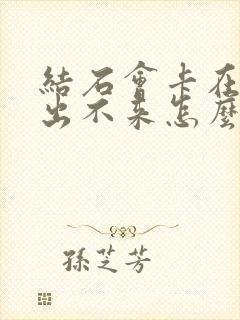 結石會卡在
出不來怎麼
孫芝芳